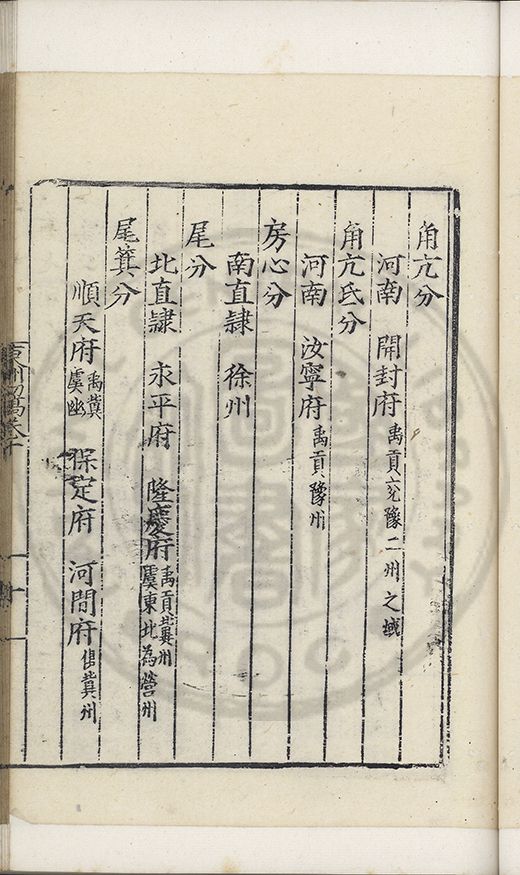 角亢分
河南　開封府禹貢兖豫二州之域
角亢氐分
河南　汝寧府禹貢豫州
房心分
南直隸　徐州
尾分
北直隸　永平府　隆慶府禹貢冀州虞東北為營州
尾箕分
順天府禹冀虞幽　保定府　河間府俱冀州